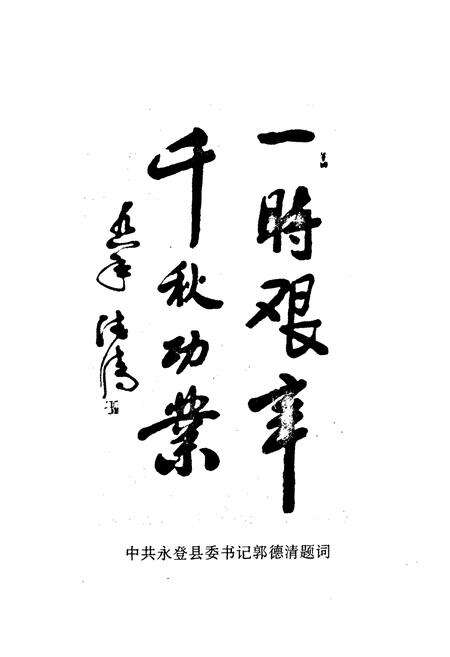 一時艰辛
千秋功業
中共永登县委书记郭德清题词